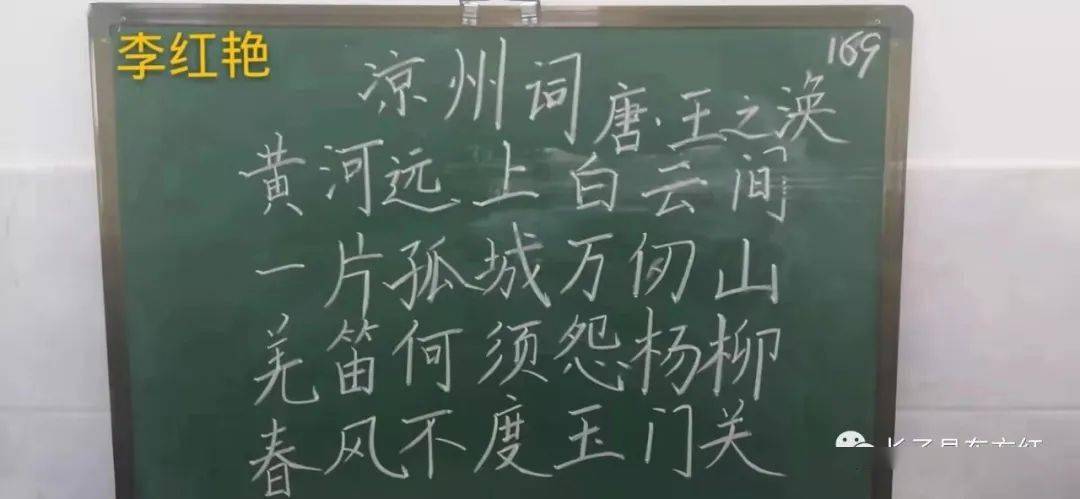 李红艳
169
凉州词
唐·王之涣
黄河远上白云间
一片孤城万仞山
羌笛何须怨杨柳
春风不度玉门关